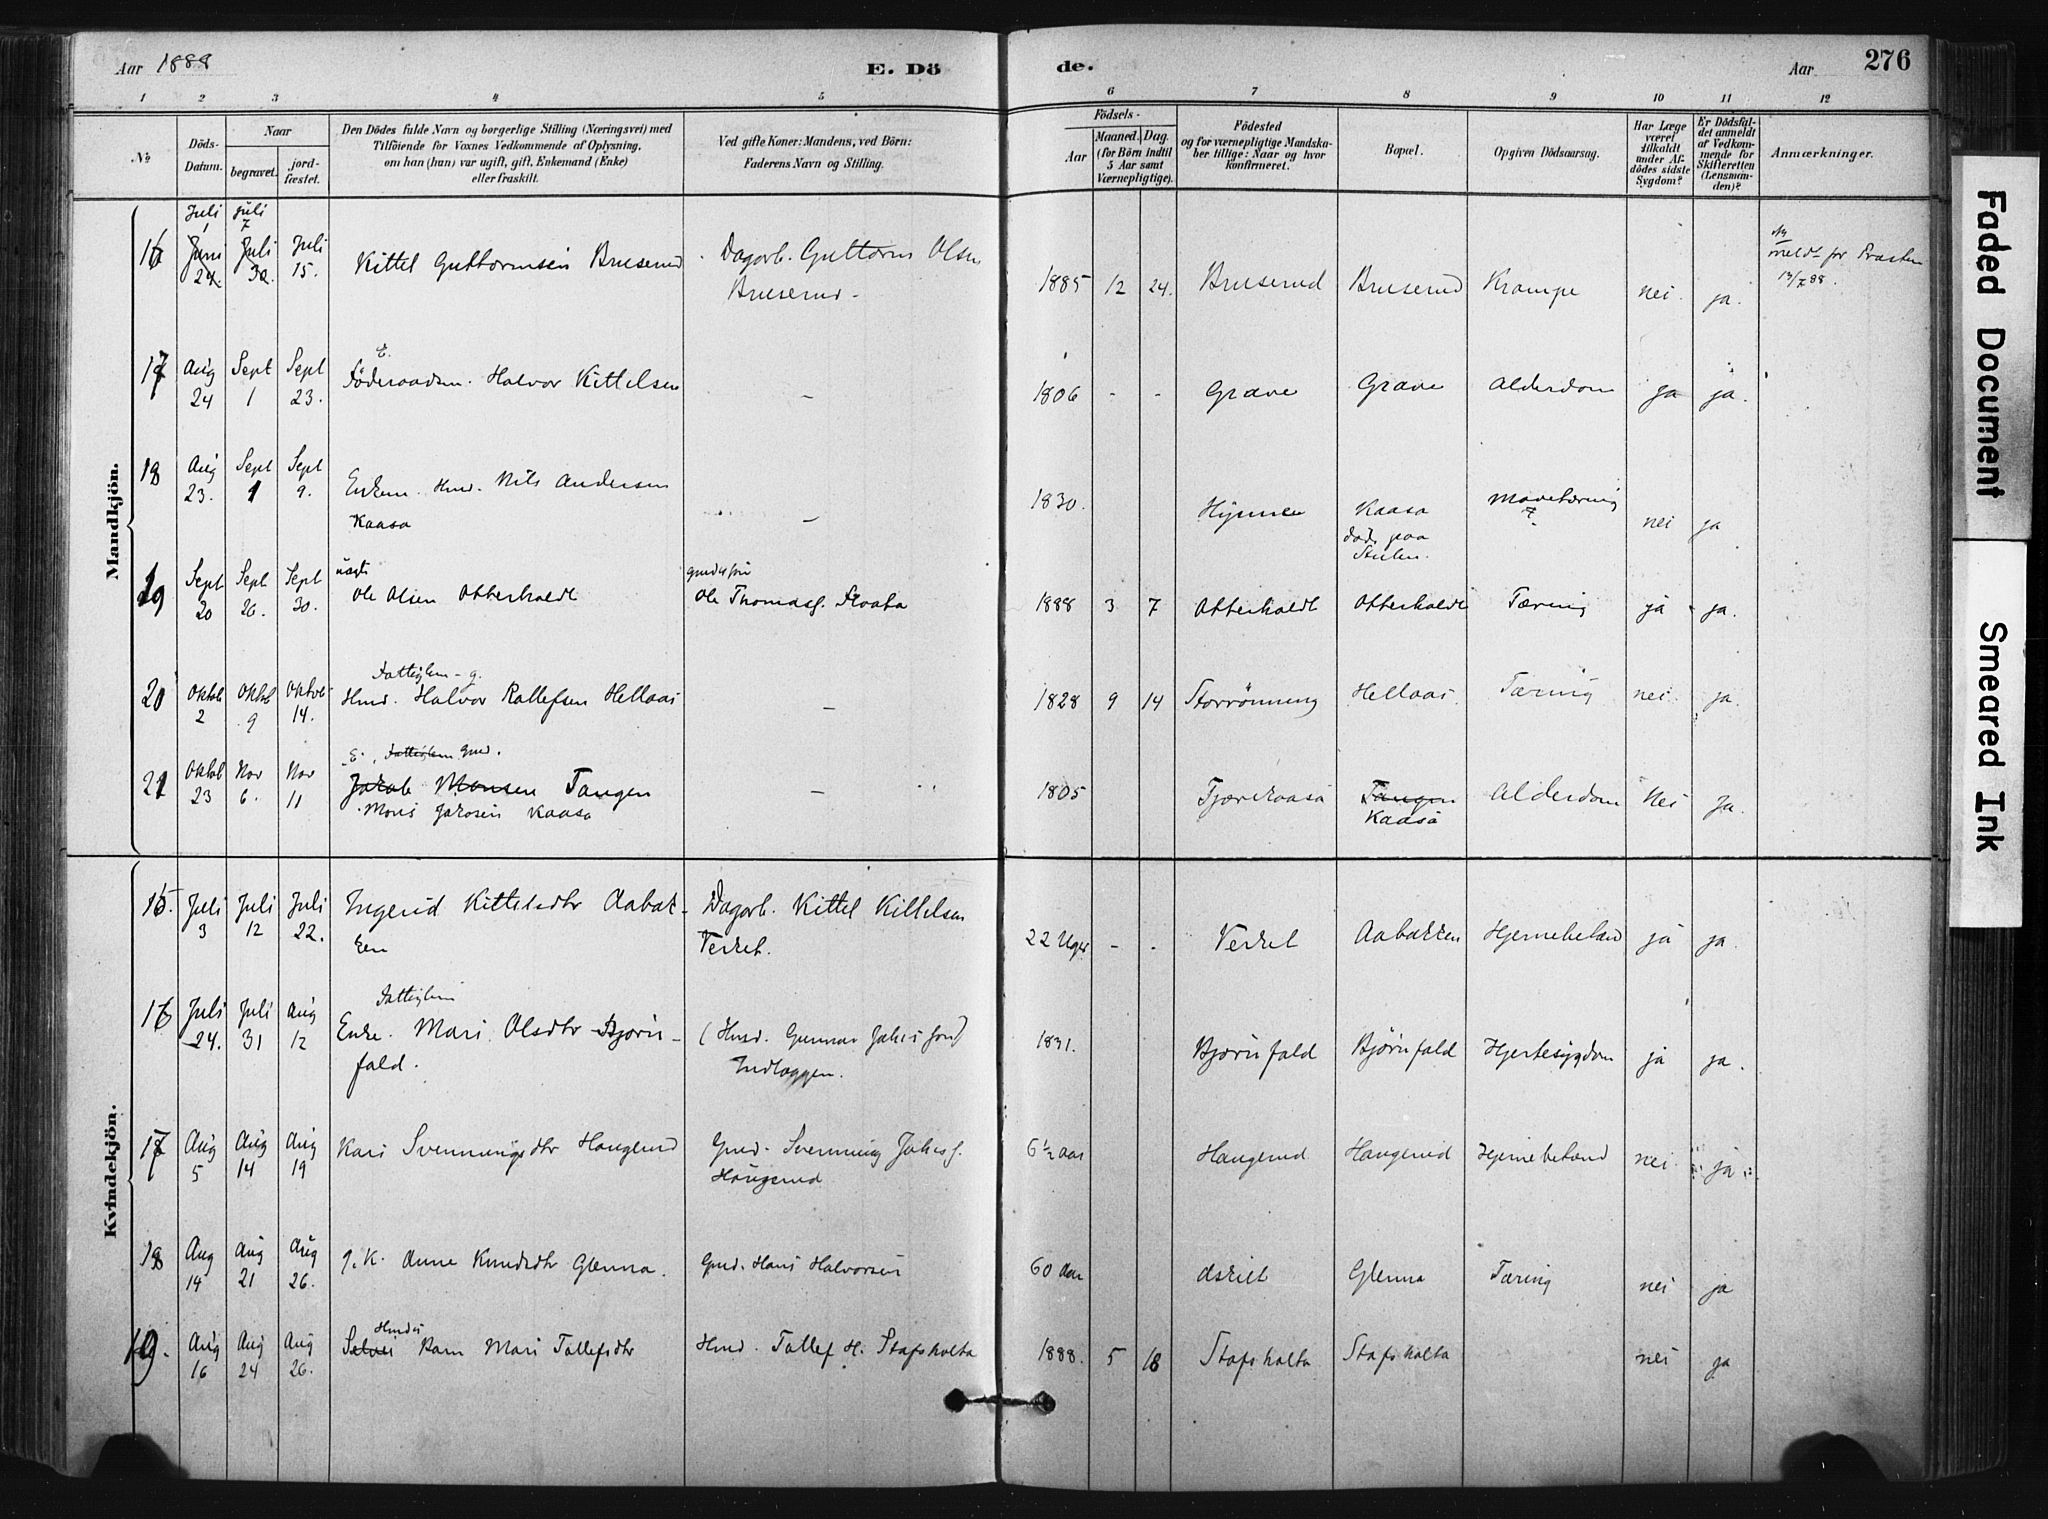 Aar 1888
E. Dö
de.
Aar
276
1 2 3 4 5 6 7 8 9 10 11 12
No
Döds-
Datum.
Naar
begravet.
jord-
fæstet.
Den Dödes fulde Navn og borgerlige Stilling (Næringsvei) med
Tilföiende for Voxnes Vedkommende af Oplysning,
om han (hun) var ugift, gift, Enkemand (Enke)
eller fraskilt.
Ved gifte Koner: Mandens, ved Börn:
Faderens Navn og Stilling.
Födsels-
Aar
Maaned. Dag.
(for Börn indtil
5 Aar samt
Værnepligtige).
Födested
og for værnepligtige Mandska-
ber tillige: Naar og hvor
konfirmeret.
Bopæl.
Opgiven Dödsaarsag.
Har Læge
været
tilkaldt
under Af-
dödes sidste
Sygdom?
Er Dödsfal-
det anmeldt
af Vedkom-
mende for
Skifteretten
(Lensman-
den)?
Anmærkninger.
Mandkjön.
Juli 1 Juli 7
16 Juni 24. Juli 30 Juli 15. Kittel Guttormsen Bruserud Dagarb. Guttorm Olsen
Bruserud - 1885 12 24. Bruserud Bruserud Krampe nei. ja.
meldt for Præsten
13/7 88.
17 Aug 24 Sept 1 Sept 23. E.
Föderaadsm. Halvor Kittelsen - 1806 - - Grave Grave Alderdom ja ja.
18 Aug 23. Sept 1 Sept 9. Enkem. Hmd. Nils Andersen
Kaasa - 1830. Kaasa
död paa
Mavetæring
? nei ja
19 Sept 20 Sept 26. Sept 30. uægte
Ole Olsen Otterholdt
Ole Thomass. 1888 3 7 Otterholdt Otterholdt Tæring ja ja.
20 Oktob 2 Oktob 9 Oktob 14. Fattiglem - g.
Hmd. Halvor Rollefsen Hellaas - 1828 9 14 Storrönning Hellaas Tæring nei ja.
21 Oktob 23 Nov 6. Nov 11 E., Fattiglem Gmd.
Jakob Monsen Tangen - 1805 Tjærekaasa Tangen Alderdom Nei Ja.
Mons Jakosen Kaasa Kaasa
Kvindekjön.
15. Juli 3 Juli 12 Juli 22. Ingerid Kittelsdtr Aabak-
ken Dagarb. Kittel Kittelsen
Verket. 22 Uger - - Verket Aabakken Hjernebetænd ja ja.
16 Juli 24. Juli 31 Aug 12 Fattiglem
Enke. Mari Olsdtr Bjørn-
fald. (Husd. Gunnar
1831. Bjørnfald Bjørnfald Hjertesygdom ja ja.
17 Aug 5 Aug 14 Aug 19 Kari Svenningsdtr Haugerud Gmd. Svenning
Haugerud 6½ aar Haugerud Haugerud Hjernebetænd nei ja
18 Aug 14 Aug 21 Aug 26. g. K. Anne Knudsdtr Glenna. Gmd. Hans Halvorsen 60 Aar Askilt Glenna Tæring nei ja
19. Aug 16 Aug 24 Aug 26. Hmds
Barn Mari Tollefsdtr Hmd. Tollef H. Stafsholta 1888. 5 18 Stafsholta Stafsholta nei ja
Faded Document
Smeared Ink